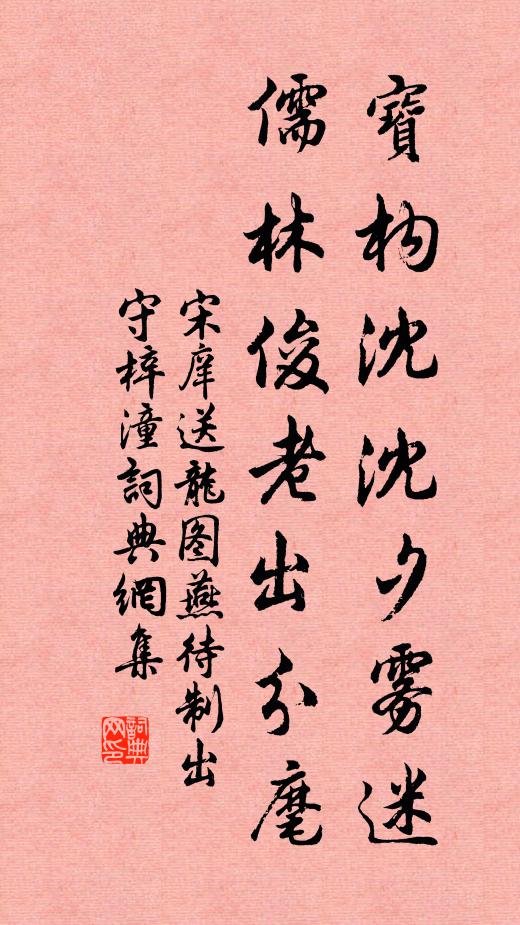 寶构沈沈夕雾迷
儒林俊老出分麾
宋庠送龍图燕待制出
守梓潼詞典網集
詞典网印